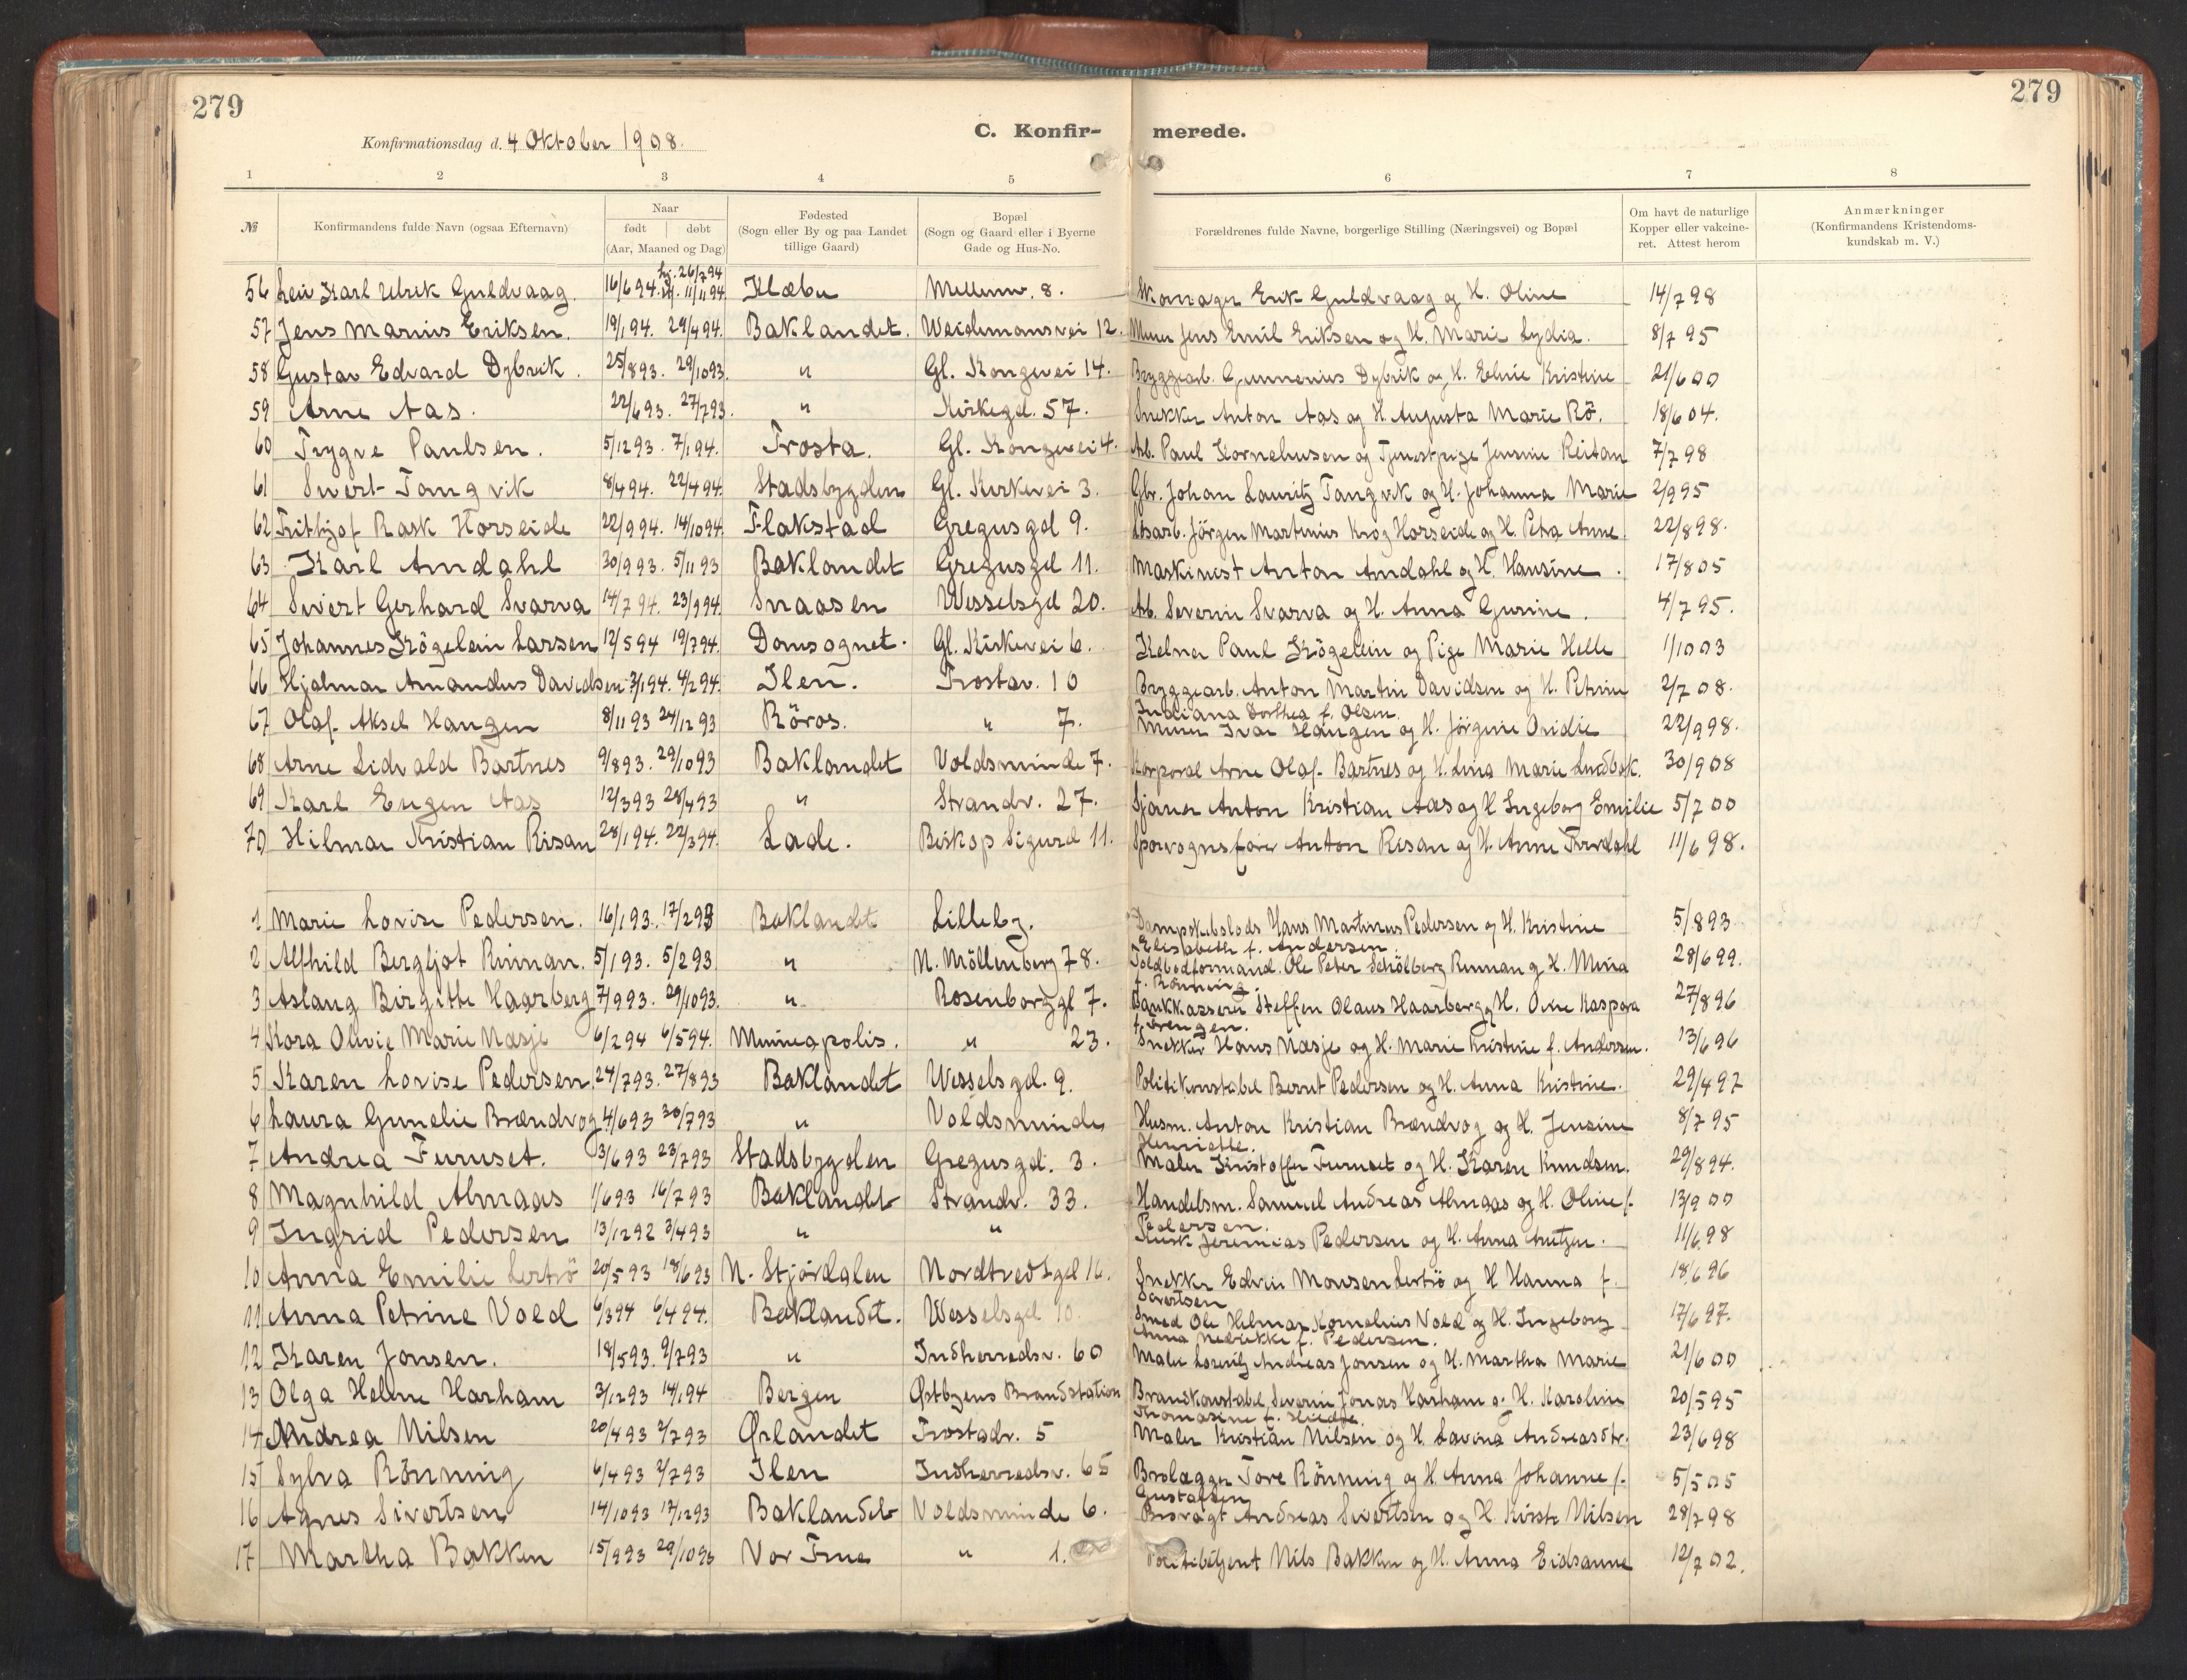 279
279
Konfirmationsdag d. 4 Oktober 1908.
C. Konfir- merede.
1 2 3 4 5 6 7 8
№
Konfirmandens fulde Navn (ogsaa Efternavn)
Naar
født døbt
(Aar, Maaned og Dag)
Fødested
(Sogn eller By og paa Landet
tillige Gaard)
Bopæl
(Sogn og Gaard eller i Byerne
Gade og Hus-No.
Forældrenes fulde Navne, borgerlige Stilling (Næringsvei) og Bopæl
Om havt de naturlige
Kopper eller vakcine-
ret. Attest herom
Anmærkninger
(Konfirmandens Kristendoms-
kundskab m. V.)
hj. 26/7 94
56 Leiv Karl Ulrik Guldvaag. 16/6 94. 11/11 94. Klæbu Mellemv. 8. Skomager Erik Guldvaag og H. Oline 14/7 98
57 Jens Marius Eriksen. 19/1 94. 29/4 94. Baklandet. Weidemansvei 12. Murer Jens Emil Eriksen og H. Marie Lydia. 8/7 95
58 Gustav Edvard Dybvik. 25/8 93. 29/10 93. " Gl. Kongevei 14. Bryggearb. Gunnerius Dybvik og H. Eline Kristine 21/6 00
59 Arne Aas. 22/6 93. 27/7 93. " Kirkegd. 57. Snekker Anton Aas og H. Augusta Marie Rö. 18/6 04.
60 Trygve Paulsen. 5/12 93. 7/1 94. Frosta. Gl. Kongevei 4. Arb. Paul Kornelius­en og Tjenestpige Jensine Reitan 7/7 98
61 Sivert Tangvik 8/4 94. 22/4 94. Stadsbygden Gl. Kirkevei 3. Gbr. Johan Lauritz Tangvik og H. Johanna Marie 2/9 95
62 Frithjof Rask Horseide 22/9 94. 14/10 94. Flakstad Gregusgd 9. Jörgen Martinus Krog Horseide og H. Petra Anne 22/8 98.
63 Karl Amdahl 30/9 93. 5/11 93 Baklandet Gregusgd 11. Maskinist Anton Amdahl og H. Hansine. 17/8 05
64 Sivert Gerhard Svarva 14/7 94. 23/9 94. Snaasen Wesselsgd 20. Arb. Severin Svarva og H. Anna Gurine. 4/7 95.
65 Johannes Kögelein Larsen 12/5 94 19/7 94. Domsognet. Gl. Kirkevei 6. Kelner Paul Kögelein og Pige Marie Helle 1/10 03
66 Hjalmar Amandus Davidsen 7/1 94. 4/2 94. Ilen. Frostav. 10 Bryggearb. Anton Martin Davidsen og H. Petrine 2/7 08.
Indiana Dorthea f. Olsen.
67 Olaf Aksel Haugen 8/11 93 24/12 93 Röros. " 7. Murer Ivar Haugen og H. Jörgine Ovidie 22/9 98.
68 Arne Lidvald Bartnes 9/8 93. 29/10 93 Baklandet Voldsminde 7. Korporal Arne Olaf Bartnes og H. Lina Marie Lundbak. 30/9 08
69 Karl Eugen Aas 12/3 93 28/4 93 " Strandv. 27. Sjauer Anton Kristian Aas og H Ingeborg Emilie 5/7 00
70 Hilmar Kristian Risan 28/1 94. 22/3 94. Lade. Biskop Sigurd 11. Sporvognsförer Anton Risan og H. Anne Furdahl 11/6 98.
1 Marie Lovise Pedersen. 16/1 93. 17/2 93 Baklandet Lilleby. Dampskibslods Hans Martinus Pedersen og H. Kristine 5/8 93
Elisabeth f. Andersen.
2 Alfhild Bergljot Rinnan. 5/1 93. 5/2 93 " N. Möllenberg 78. Toldbodformand. Ole Peter Schölberg Rinnan og H. Mina 28/6 99.
f. Rönning.
3 Aslaug Birgitte Haarberg 7/9 93. 29/10 93. " Rosenborggt 7. Bankkasserer Steffen Olaus Haarberg og H. Ovine Kaspara 27/8 96
f. Brengen.
4 Kora Olivie Marie Næsje 6/2 94 6/5 94. Minneapolis. " 23. Snekker Hans Næsje og H. Marie Kristine f. Andersen. 13/6 96
5 Karen Lovise Pedersen 24/7 93. 27/8 93 Baklandet Wesselsgd. 9. Politikonstabel Bernt Pedersen og H. Anna Kristine. 29/4 97
6 Laura Gunelie Brændvog 4/6 93 30/7 93 " Voldsminde Husm. Anton Kristian Brændvog og H. Jensine 8/7 95
Henriette.
7 Andrea Furuset. 3/6 93 23/7 93 Stadsbygden Gregusgd. 3. Maler Kristoffer Furuset og H. Karen Knudsen. 29/8 94.
8 Magnhild Almaas 1/6 93 16/7 93 Baklandet Strandv. 33. Handelsm. Samuel Andreas Almaas og H. Oline f. 13/9 00
Pedersen.
9 Ingrid Pedersen 13/12 92 3/4 93 " " Kusk Jeremias Pedersen og H. Anna Arntzen. 11/6 98
10 Anna Emilie Lertrö 20/5 93 18/6 93 N. Stjördalen Nordtvedtgd 16. Snekker Edvin Monsen Lertrö og H Hanna f. 18/6 96
Sivertsen
11 Anna Petrine Vold 6/3 94 6/4 94. Baklandet. Wesselsgd 10. Smed Ole Hilmar Kornelius Vold og H. Ingeborg 17/6 97.
Anna Nedrikke f. Pedersen.
12 Karen Jonsen. 18/5 93. 9/7 93 " Indherredsv. 60 Maler Lorentz Andreas Jonsen og H. Martha Marie 21/6 00
13 Olga Helene Harham 3/12 93 14/1 94 Bergen Østbyens Brandstation Brandkonstabel Severin Jonas Harham og H. Karoline 20/5 95
Thomasine f.
14 Andrea Nilsen 20/4 93 2/7 93 Ørlandet Frostadv. 5 Maler Kristian Nilsen og H Lavina Andreasdtr. 23/6 98
15 Sylva Rönning 6/4 93 2/7 93 Ilen Indherredsv. 65 Brolægger Tore Rönning og H. Anna Johanne f. 5/5 05
Gustafsen
16 Agnes Sivertsen 14/10 93 17/12 93 Baklandet Voldsminde 6. Brovagt Andreas Sivertsen og H. Kirsti Nilsen 28/7 98
17 Martha Bakken 15/9 93 29/10 93 Vor Frue " 1. Politibetjent Nils Bakken og H. Anna Eidsaune 12/7 02.